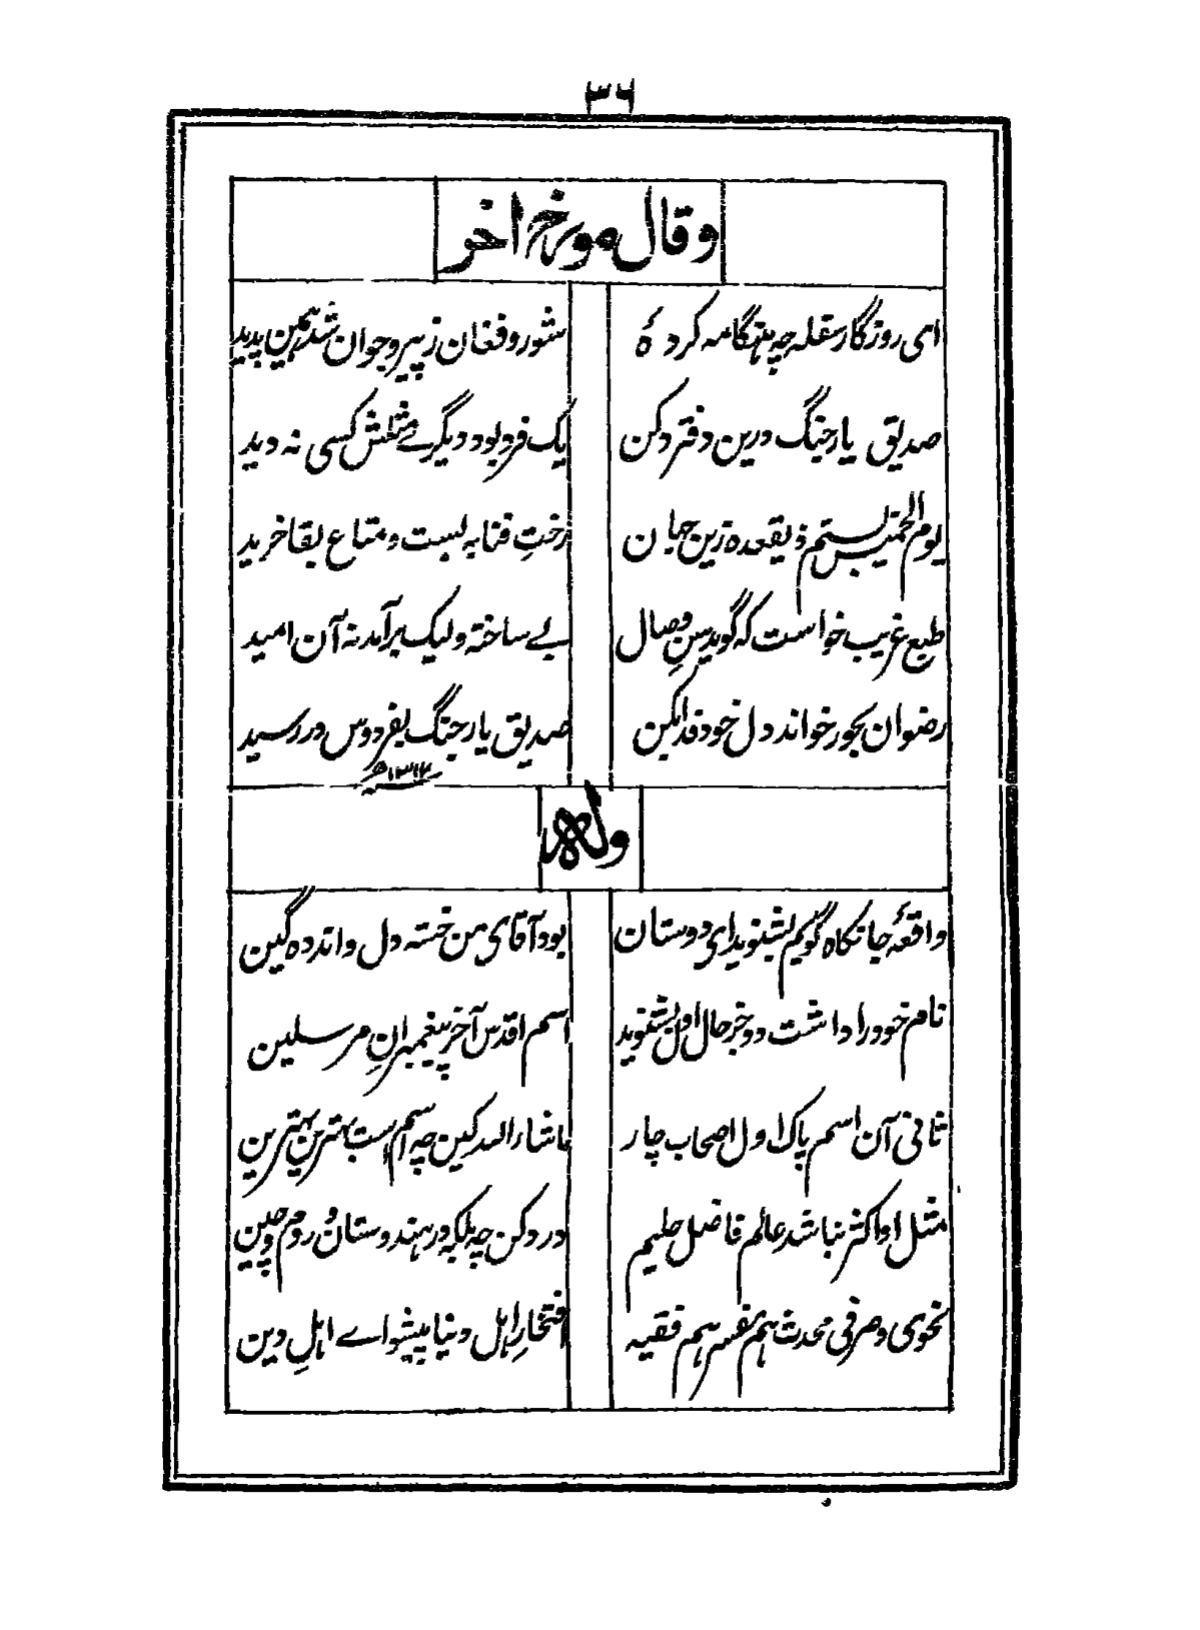 ٣٦
وقال مورخ اخر
ای روزگار سفله چه هنگامه کردهٔ
شور و فغان ز پیر و جوان شد همین پدید
صدیق یار جنگ درین دفتر دکن
یک فرد بود دیگرے مثلش کسی نه دید
یوم الخمیس بستم ذیقعده زین جهان
رختِ فنا به بست و متاع بقا خرید
طبع غریب خواست که گوید سنِ وصال
بے ساخته ولیک برآمد نه آن امید
رضوان بحور خواند دل خود فدا بکن
صدیق یار جنگ بفردوس در رسید
١٣١٢ھ
وله
واقعهٔ جانکاه گویم بشنوید ای دوستان
بود آقای من خسته دل و اندوه گین
نام خود را داشت دو جز حال اول بشنوید
اسم اقدس آخر پیغمبرانِ مرسلین
ثانی آن اسم پاک اول اصحاب چار
ماشاء الله کین چه اسم است بهترین بهترین
مثل او اکثر نباشد عالم فاضل حلیم
در دکن چه بلکه در هندوستان و روم و چین
نحوی و صرفی محدث هم مفسر هم فقیه
افتخارِ اهل دنیا پیشواے اهلِ دین